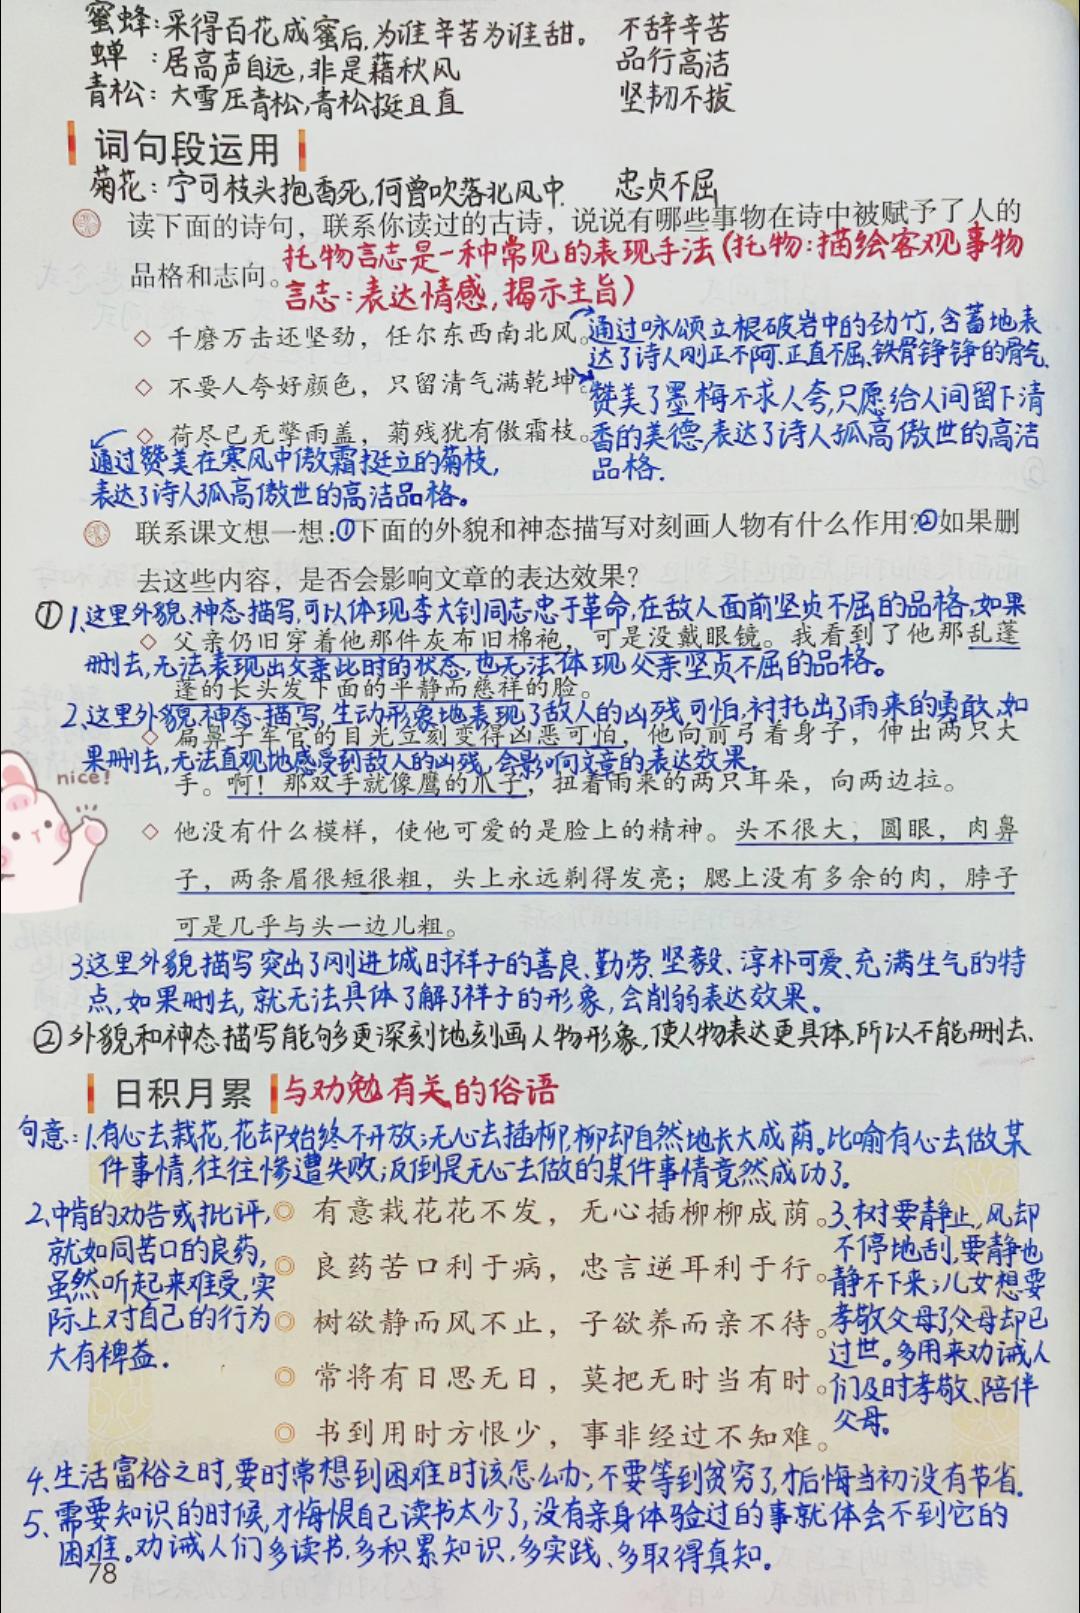 蜜蜂:采得百花成蜜后,为谁辛苦为谁甜。 不辞辛苦
蝉 :居高声自远,非是藉秋风 品行高洁
青松:大雪压青松,青松挺且直 坚韧不拔
词句段运用
菊花:宁可枝头抱香死,何曾吹落北风中. 忠贞不屈
读下面的诗句,联系你读过的古诗,说说有哪些事物在诗中被赋予了人的
品格和志向。
托物言志是一种常见的表现手法(托物:描绘客观事物
言志:表达情感,揭示主旨)
◇ 千磨万击还坚劲,任尔东西南北风。
通过咏颂立根破岩中的劲竹,含蓄地表
达了诗人刚正不阿.正直不屈.铁骨铮铮的骨气.
◇ 不要人夸好颜色,只留清气满乾坤。
赞美了墨梅不求人夸,只愿给人间留下清
香的美德,表达了诗人孤高傲世的高洁
品格.
◇ 荷尽已无擎雨盖,菊残犹有傲霜枝。
通过赞美在寒风中傲霜挺立的菊枝,
表达了诗人孤高傲世的高洁品格。
联系课文想一想:①下面的外貌和神态描写对刻画人物有什么作用?②如果删
去这些内容,是否会影响文章的表达效果?
① 1.这里外貌、神态描写,可以体现李大钊同志忠于革命,在敌人面前坚贞不屈的品格,如果
删去,无法表现出父亲此时的状态,也无法体现父亲坚贞不屈的品格。
◇ 父亲仍旧穿着他那件灰布旧棉袍,可是没戴眼镜。我看到了他那乱蓬
蓬的长头发下面的平静而慈祥的脸。
2.这里外貌、神态描写,生动形象地表现了敌人的凶残可怕,衬托出了雨来的勇敢,如
果删去,无法直观地感受到敌人的凶残,会影响文章的表达效果.
◇ 扁鼻子军官的目光立刻变得凶恶可怕,他向前弓着身子,伸出两只大
手。啊!那双手就像鹰的爪子,扭着雨来的两只耳朵,向两边拉。
nice!
◇ 他没有什么模样,使他可爱的是脸上的精神。头不很大,圆眼,肉鼻
子,两条眉很短很粗,头上永远剃得发亮;腮上没有多余的肉,脖子
可是几乎与头一边儿粗。
3.这里外貌描写突出了刚进城时祥子的善良、勤劳、坚毅、淳朴可爱、充满生气的特
点,如果删去,就无法具体了解了祥子的形象,会削弱表达效果。
② 外貌和神态描写能够更深刻地刻画人物形象,使人物表达更具体,所以不能删去.
日积月累 与劝勉有关的俗语
句意:1.有心去栽花,花却始终不开放;无心去插柳,柳却自然地长大成荫。比喻有心去做某
件事情,往往惨遭失败;反倒是无心去做的某件事情竟然成功了。
◎ 有意栽花花不发,无心插柳柳成荫。
◎ 良药苦口利于病,忠言逆耳利于行。
◎ 树欲静而风不止,子欲养而亲不待。
◎ 常将有日思无日,莫把无时当有时。
◎ 书到用时方恨少,事非经过不知难。
2、中肯的劝告或批评,
就如同苦口的良药,
虽然听起来难受,实
际上对自己的行为
大有裨益.
3、树要静止,风却
不停地刮,要静也
静不下来;儿女想要
孝敬父母了父母却已
过世。多用来劝诫人
们及时孝敬、陪伴
父母。
4、生活富裕之时,要时常想到困难时该怎么办;不要等到贫穷了,才后悔当初没有节省.
5、需要知识的时候,才悔恨自己读书太少了,没有亲身体验过的事就体会不到它的
困难。劝诫人们多读书,多积累知识,多实践、多取得真知。
78